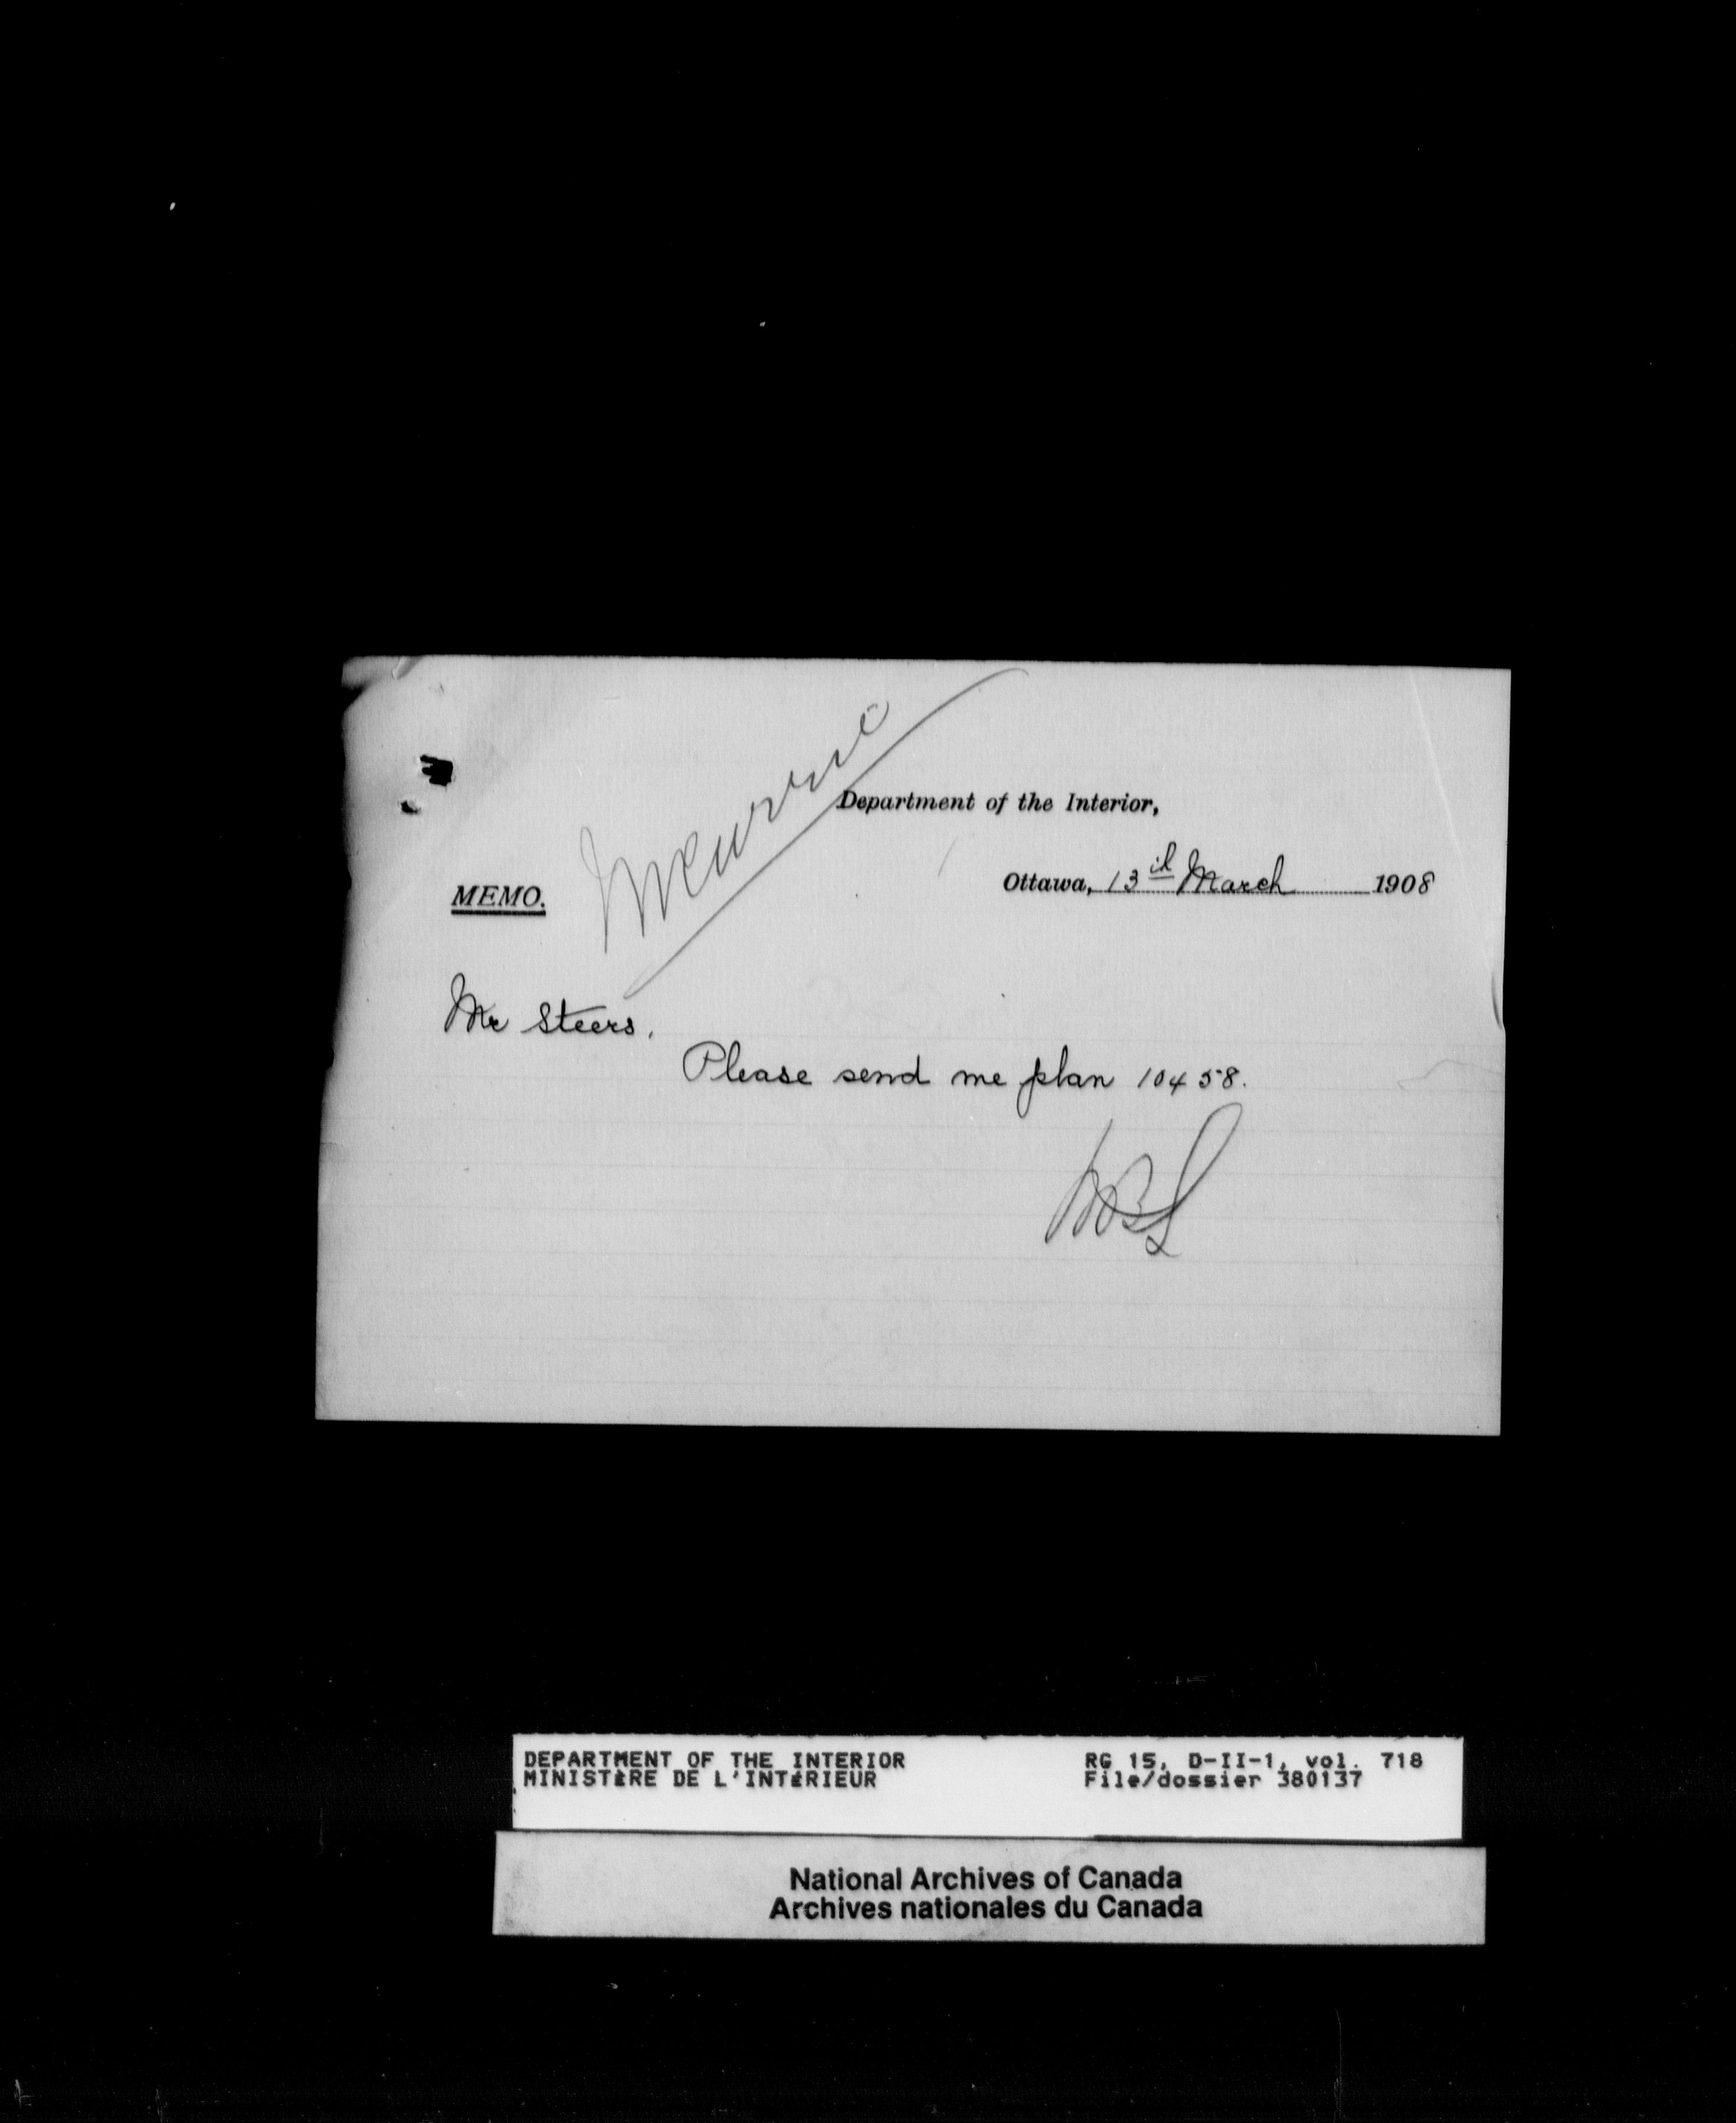 Department of the Interior,
Ottawa, 13th March 1908
MEMO.
Mr Steers.
Please send me plan 10458.
DEPARTMENT OF THE INTERIOR
MINISTÈRE DE L'INTÉRIEUR
RG 15, D-II-1, vol. 718
File/dossier 380137
National Archives of Canada
Archives nationales du Canada